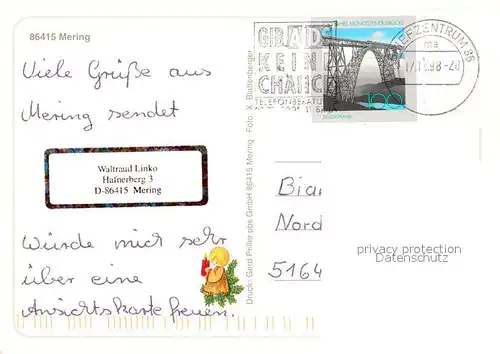 86415 Mering
Viele Grüße aus
Mering sendet
Waltraud Linko
Hafnerberg 3
D-86415 Mering
Würde mich sehr
über eine
Ansichtskarte freuen.
Druck: Gerd Priller pbs GmbH 86415 Mering Foto: X. Blattenberger
KEINE
CHANCE
BRIEFZENTRUM 86
ma
100
Bian
Nord
5164
privacy protection
Datenschutz